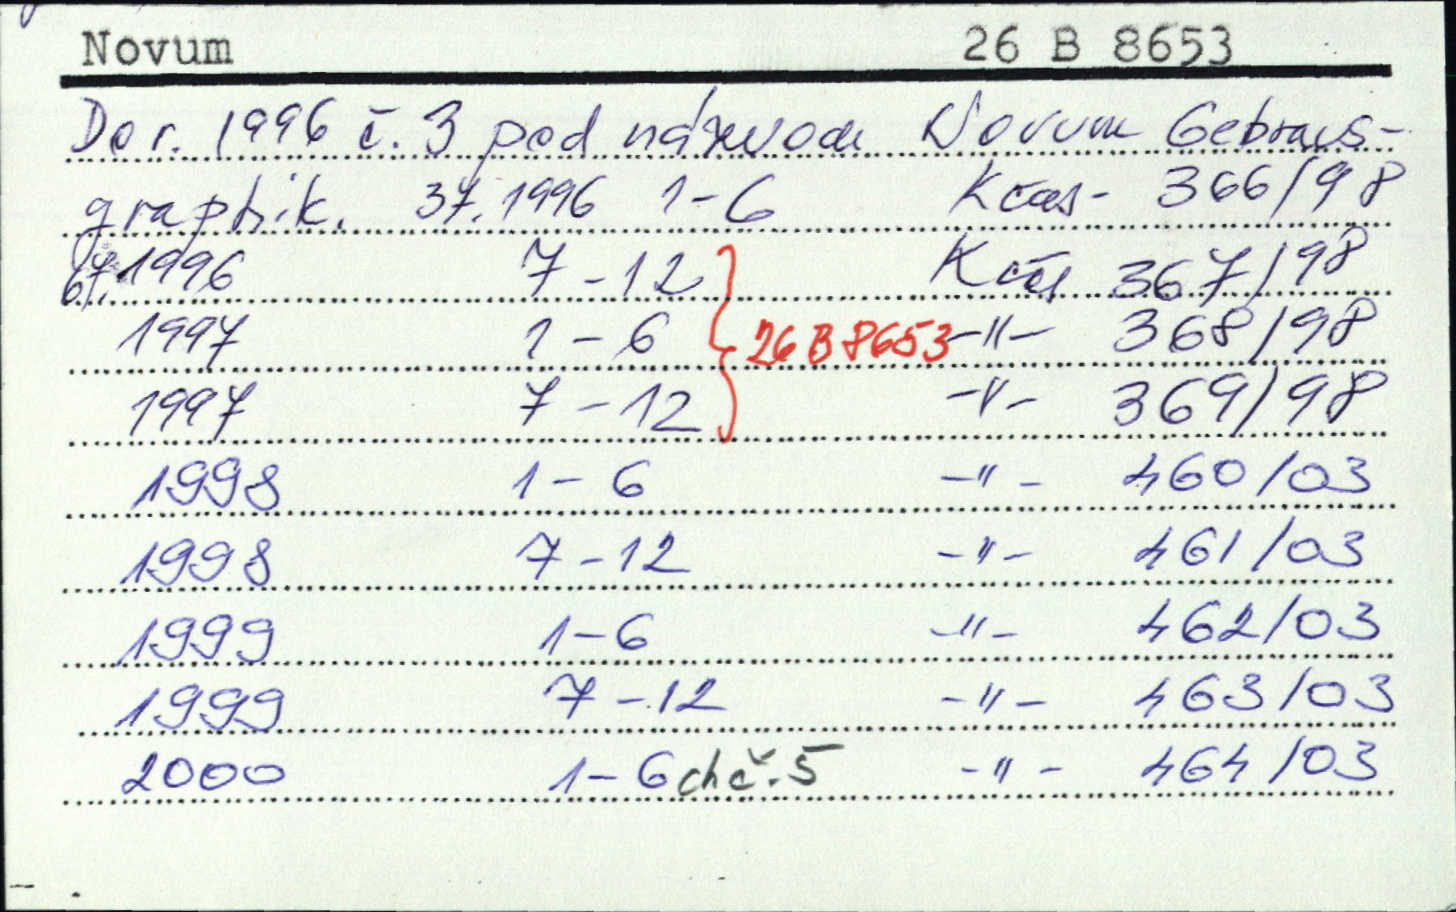 Novum 26 B 8653
Do r. 1996 č. 3 pod názvem Novum Gebraus-
graphik. 37. 1996 1-6 Kčas- 366/98
67. 1996 7-12 Kčas 367/98
1997 1-6 26 B 8653 -"- 368/98
1997 7-12 -"- 369/98
1998 1-6 -"- 460/03
1998 7-12 -"- 461/03
1999 1-6 -"- 462/03
1999 7-12 -"- 463/03
2000 1-6 ch č. 5 -"- 464/03